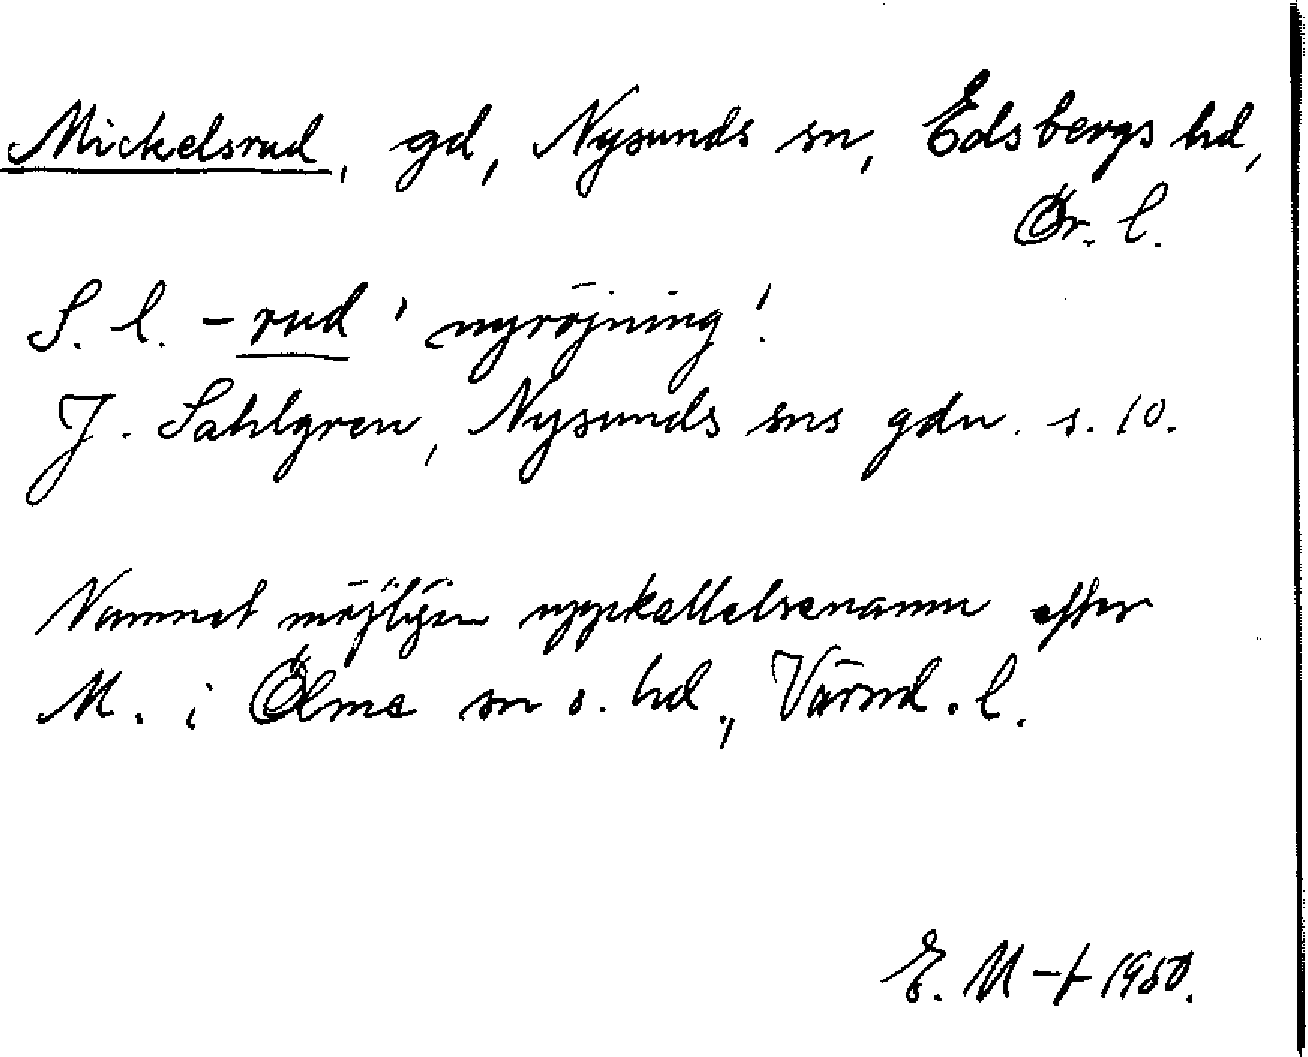 Mickelsrud, gd, Nysunds sn, Edsbergs hd,
Ör. l.
S. l. - rud 'nyröjning'.
J. Sahlgren, Nysunds sns gdn. s. 10.
Namnet möjligen uppkallelsenamn efter
M. i Ölme sn o. hd., Värml. l.
E. M-t 1950.